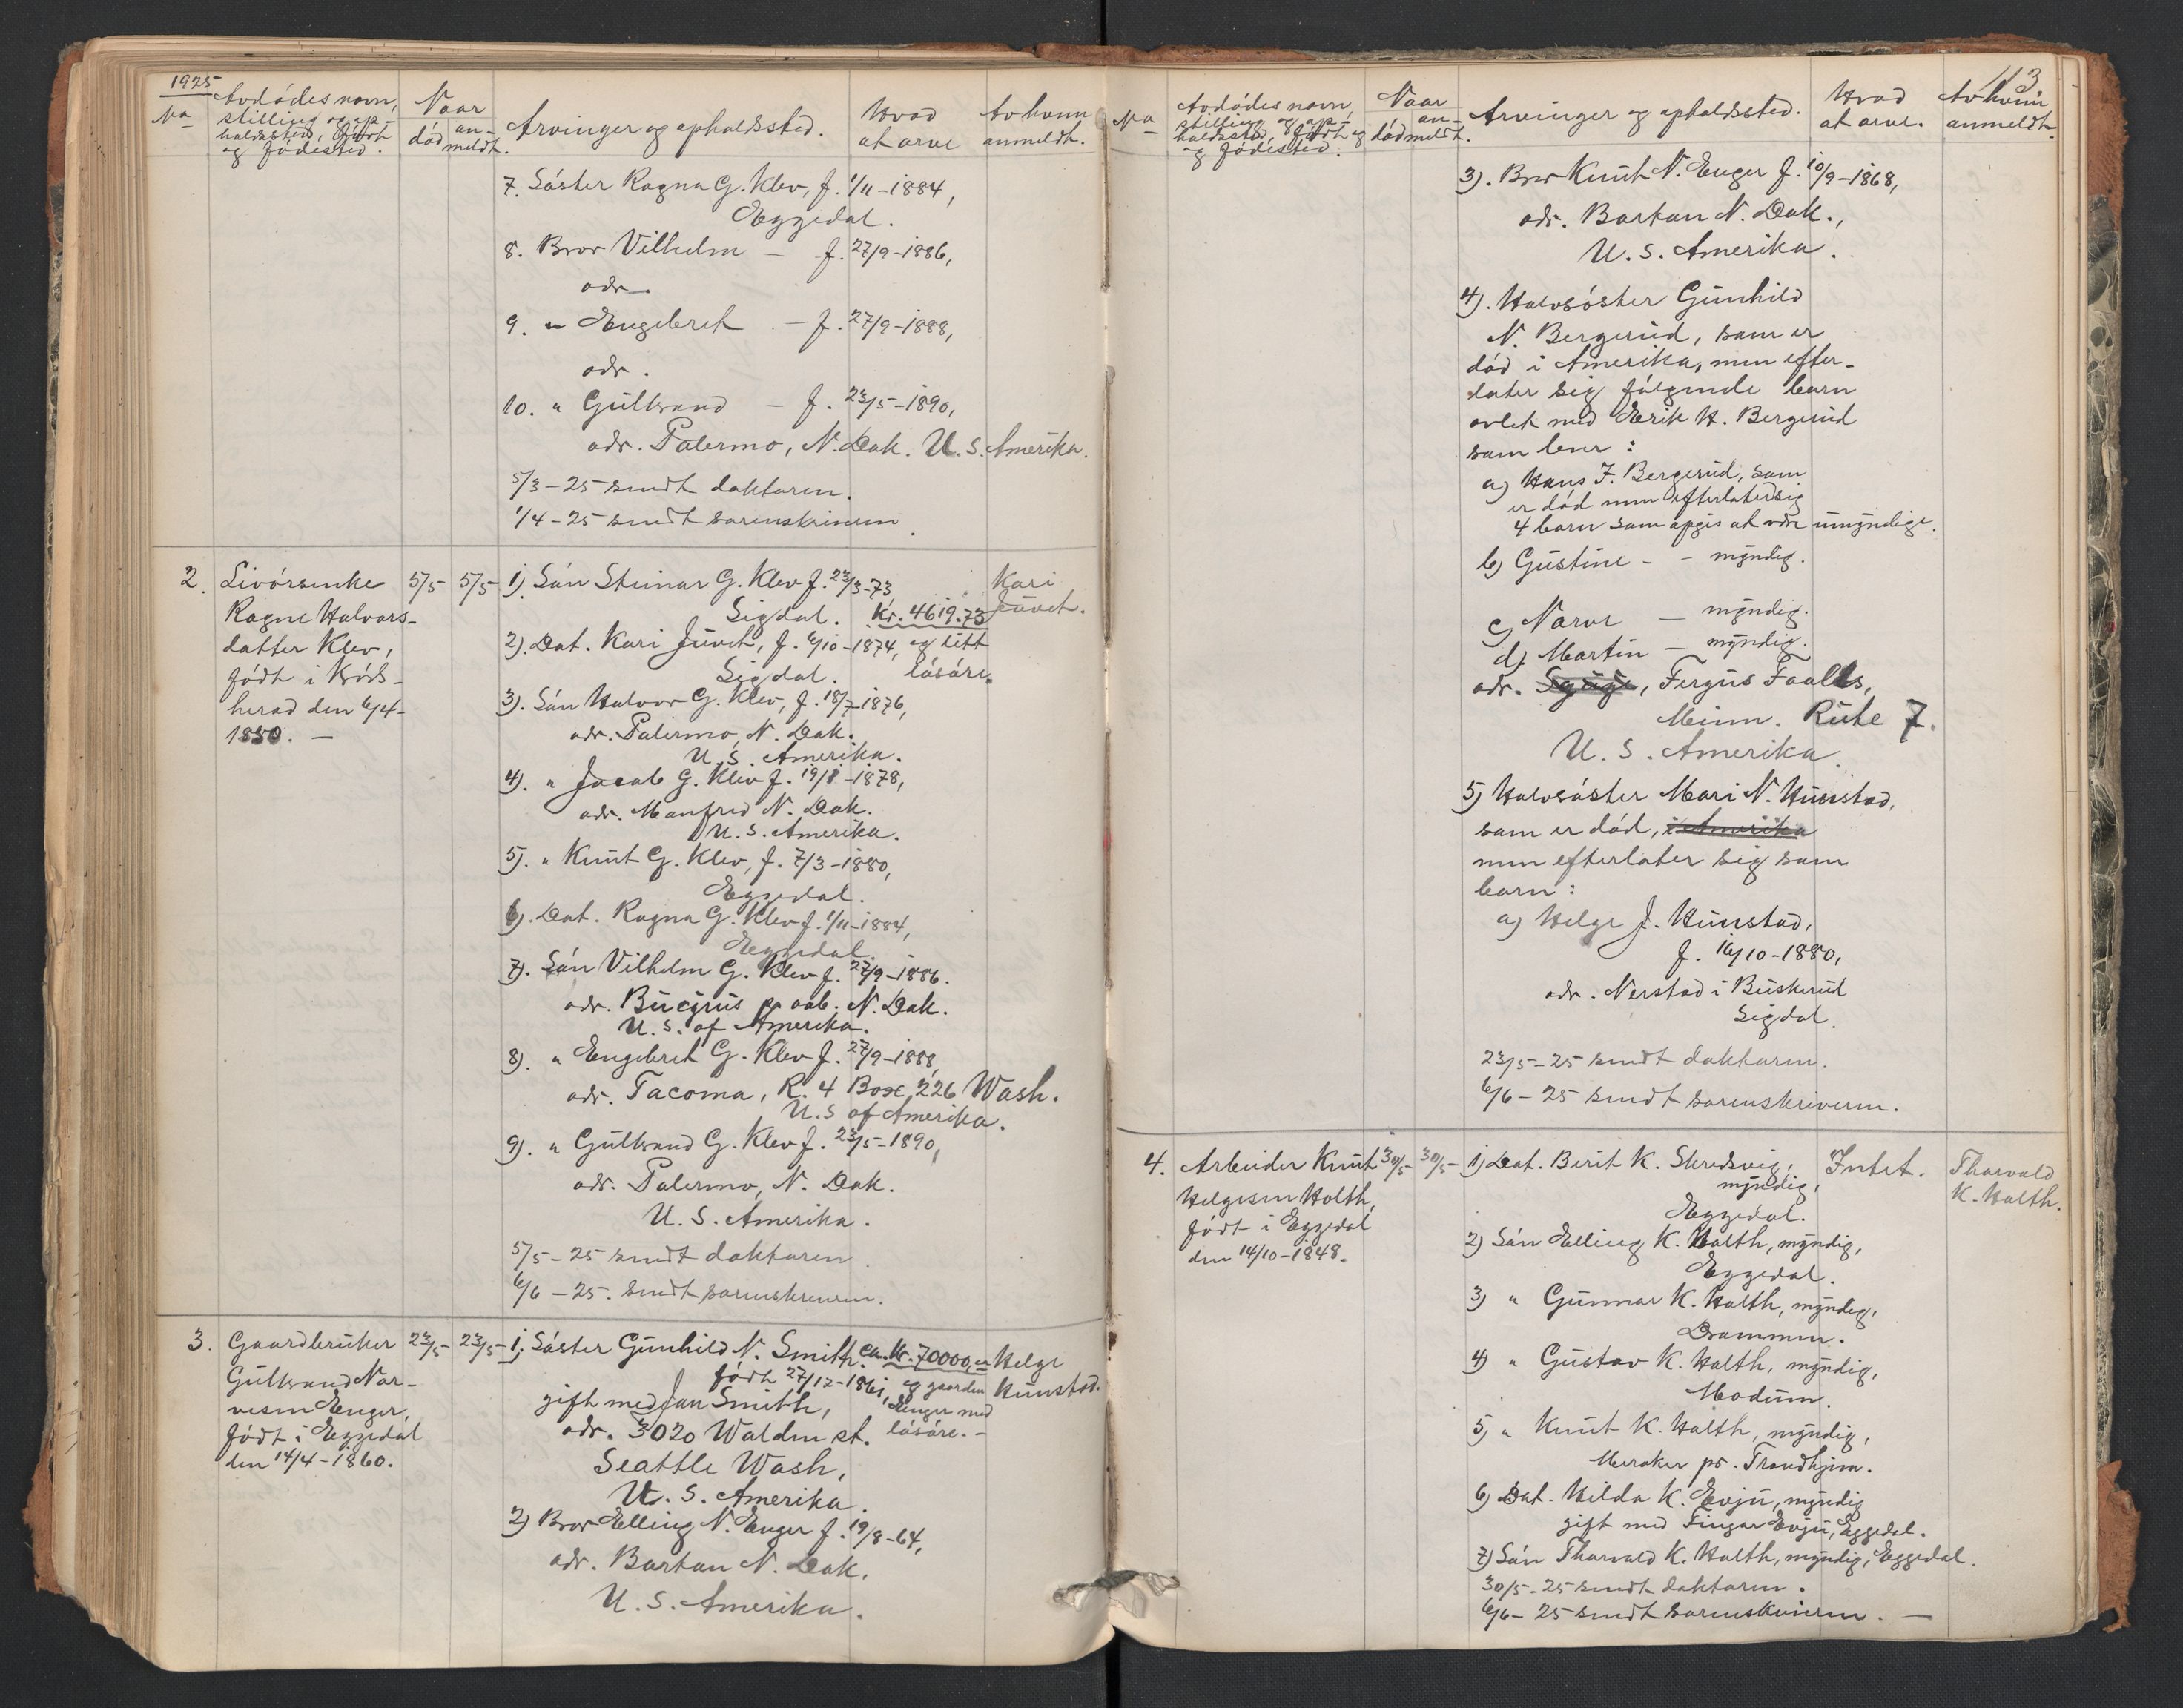 1925
No
Avdödes navn,
stilling og op-
holdssted, födt
og födested.
Naar
död an-
meldt.
Arvinger og opholdssted.
Hvad
at arve
Av hvem
anmeldt.
7. Söster Ragna G. Klev, f. 1/11-1884,
Eggedal.
8. Bror Vilhelm — f. 27/9-1886,
adr.
9. " Engebret — f. 27/9-1888,
adr.
10. " Gulbrand — f. 23/5-1890,
adr. Palermo, N. Dak. U. S. Amerika.
5/3-25 sendt doktoren.
1/4-25 sendt sorenskriveren.
2. Livörsenke
Ragne Halvors-
datter Klev,
födt i Kröds-
herad den 6/4-
1850. —
5/5 5/5
1). Sön Steinar G. Klev f. 23/3-73,
Sigdal.
2). Dat. Kari Juvet, f. 6/10-1874,
Sigdal.
3). Sön Halvor G. Klev, f. 18/7-1876,
adr. Palermo, N. Dak.
U. S. Amerika.
4). " Jacob G. Klev f. 19/8-1878,
adr. Manfred N. Dak.
U. S. Amerika.
5). " Knut G. Klev, f. 7/3-1880,
Eggedal.
6). Dat. Ragna G. Klev f. 1/11-1884,
Eggedal.
7). Sön Vilhelm G. Klev f. 27/9-1886.
adr. Bucyrus N. Dak.
U. S. of Amerika.
8). " Engebret G. Klev f. 27/9-1888,
adr. Tacoma, R. 4 Box 226 Wash.
U. S of Amerika.
9). " Gulbrand G. Klev f. 23/5-1890,
adr. Palermo, N. Dak.
U. S. Amerika.
5/5-25 sendt doktoren.
6/6-25. sendt sorenskriveren.
Kr. 4619.73
og litt
lösöre.
Kari
Juvet.
3. Gaardbruker
Gulbrand Nar-
vesen Enger,
födt i Eggedal
den 14/4-1860.
23/5- 23/5-
1) Söster Gunhild N. Smith.
födt 27/12-1861,
gift med Jan Smith,
adr. 3020 Walden st.
Seattle Wash,
U. S. Amerika.
2) Bror Elling N. Enger f. 19/8-64,
adr. Bartan N. Dak.
U. S. Amerika.
ca. Kr. 70000,
og gaarden
Enger med
lösöre. —
Helge
Hunstad.
113
No
Avdödes navn
stilling og op-
holdssted, födt og
og födested.
Naar
död an-
meldt.
Arvinger og opholdssted.
Hvad
at arve.
Av hvem
anmeldt.
3). Bror Knut N. Enger f. 10/9-1868,
adr. Bartan N. Dak.,
U. S. Amerika.
4). Halvsöster Gunhild
N. Bergerud, som er
död i Amerika, men efter-
later sig fölgende barn
avlet med Erik H. Bergerud
som lever:
a) Hans F. Bergerud, som
er död men efterlater sig
4 barn som opgis at være umyndige.
b) Gustine - - myndig.
c) Narve — myndig.
d) Martin — myndig.
adr. Fergus Faalls,
Minn. Rute 7.
U. S. Amerika.
5) Halvsöster Mari N. Hunstad,
som er död, i Amerika
men efterlater sig som
barn:
a) Helge J. Hunstad,
f. 16/10-1880,
adr. Nerstad i Buskerud
Sigdal.
23/5-25 sendt doktoren.
6/6-25 sendt sorenskriveren.
4. Arbeider Knut
Helgesen Holth,
födt i Eggedal
den 14/10-1848.
30/5- 30/5-
1) Dat. Berit K. Skredsvig,
myndig,
Eggedal.
2) Sön Elling K. Holth, myndig,
Eggedal.
3) " Gunnar K. Holth, myndig,
Drammen.
4) " Gustav K. Holth, myndig,
Modum.
5) " Knut K. Holth, myndig,
Meraker pr. Trondhjem.
6) Dat. Hilda K. Evju, myndig
gift med Fingar Evju, Eggedal.
7) Sön Thorvald K. Holth, myndig, Eggedal.
30/5-25 sendt doktoren.
6/6-25 sendt sorenskriveren. —
Intet.
Thorvald
K. Holth.